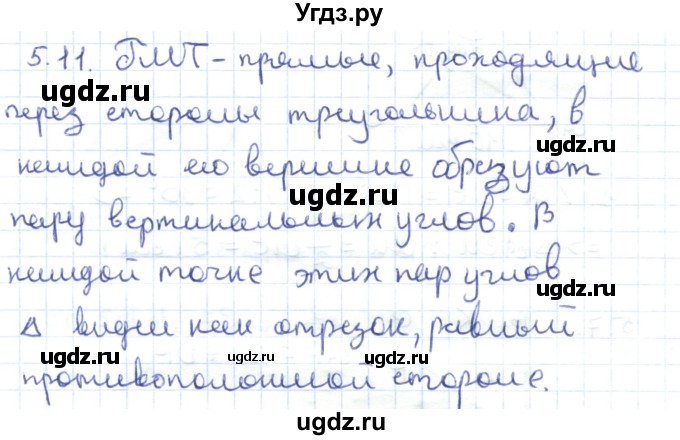 Угдз.ру
5.11. ГМТ - прямые, проходящие
через стороны треугольника, в
каждой его вершине образуют
пару вертикальных углов. В
каждой точке этих пар углов
Δ виден как отрезок, равный
противоположной стороне.
ugdz.ru
ugdz.ru
ugdz.ru
ugdz.ru
ugdz.ru
ugdz.ru
ugdz.ru
ugdz.ru
ugdz.ru